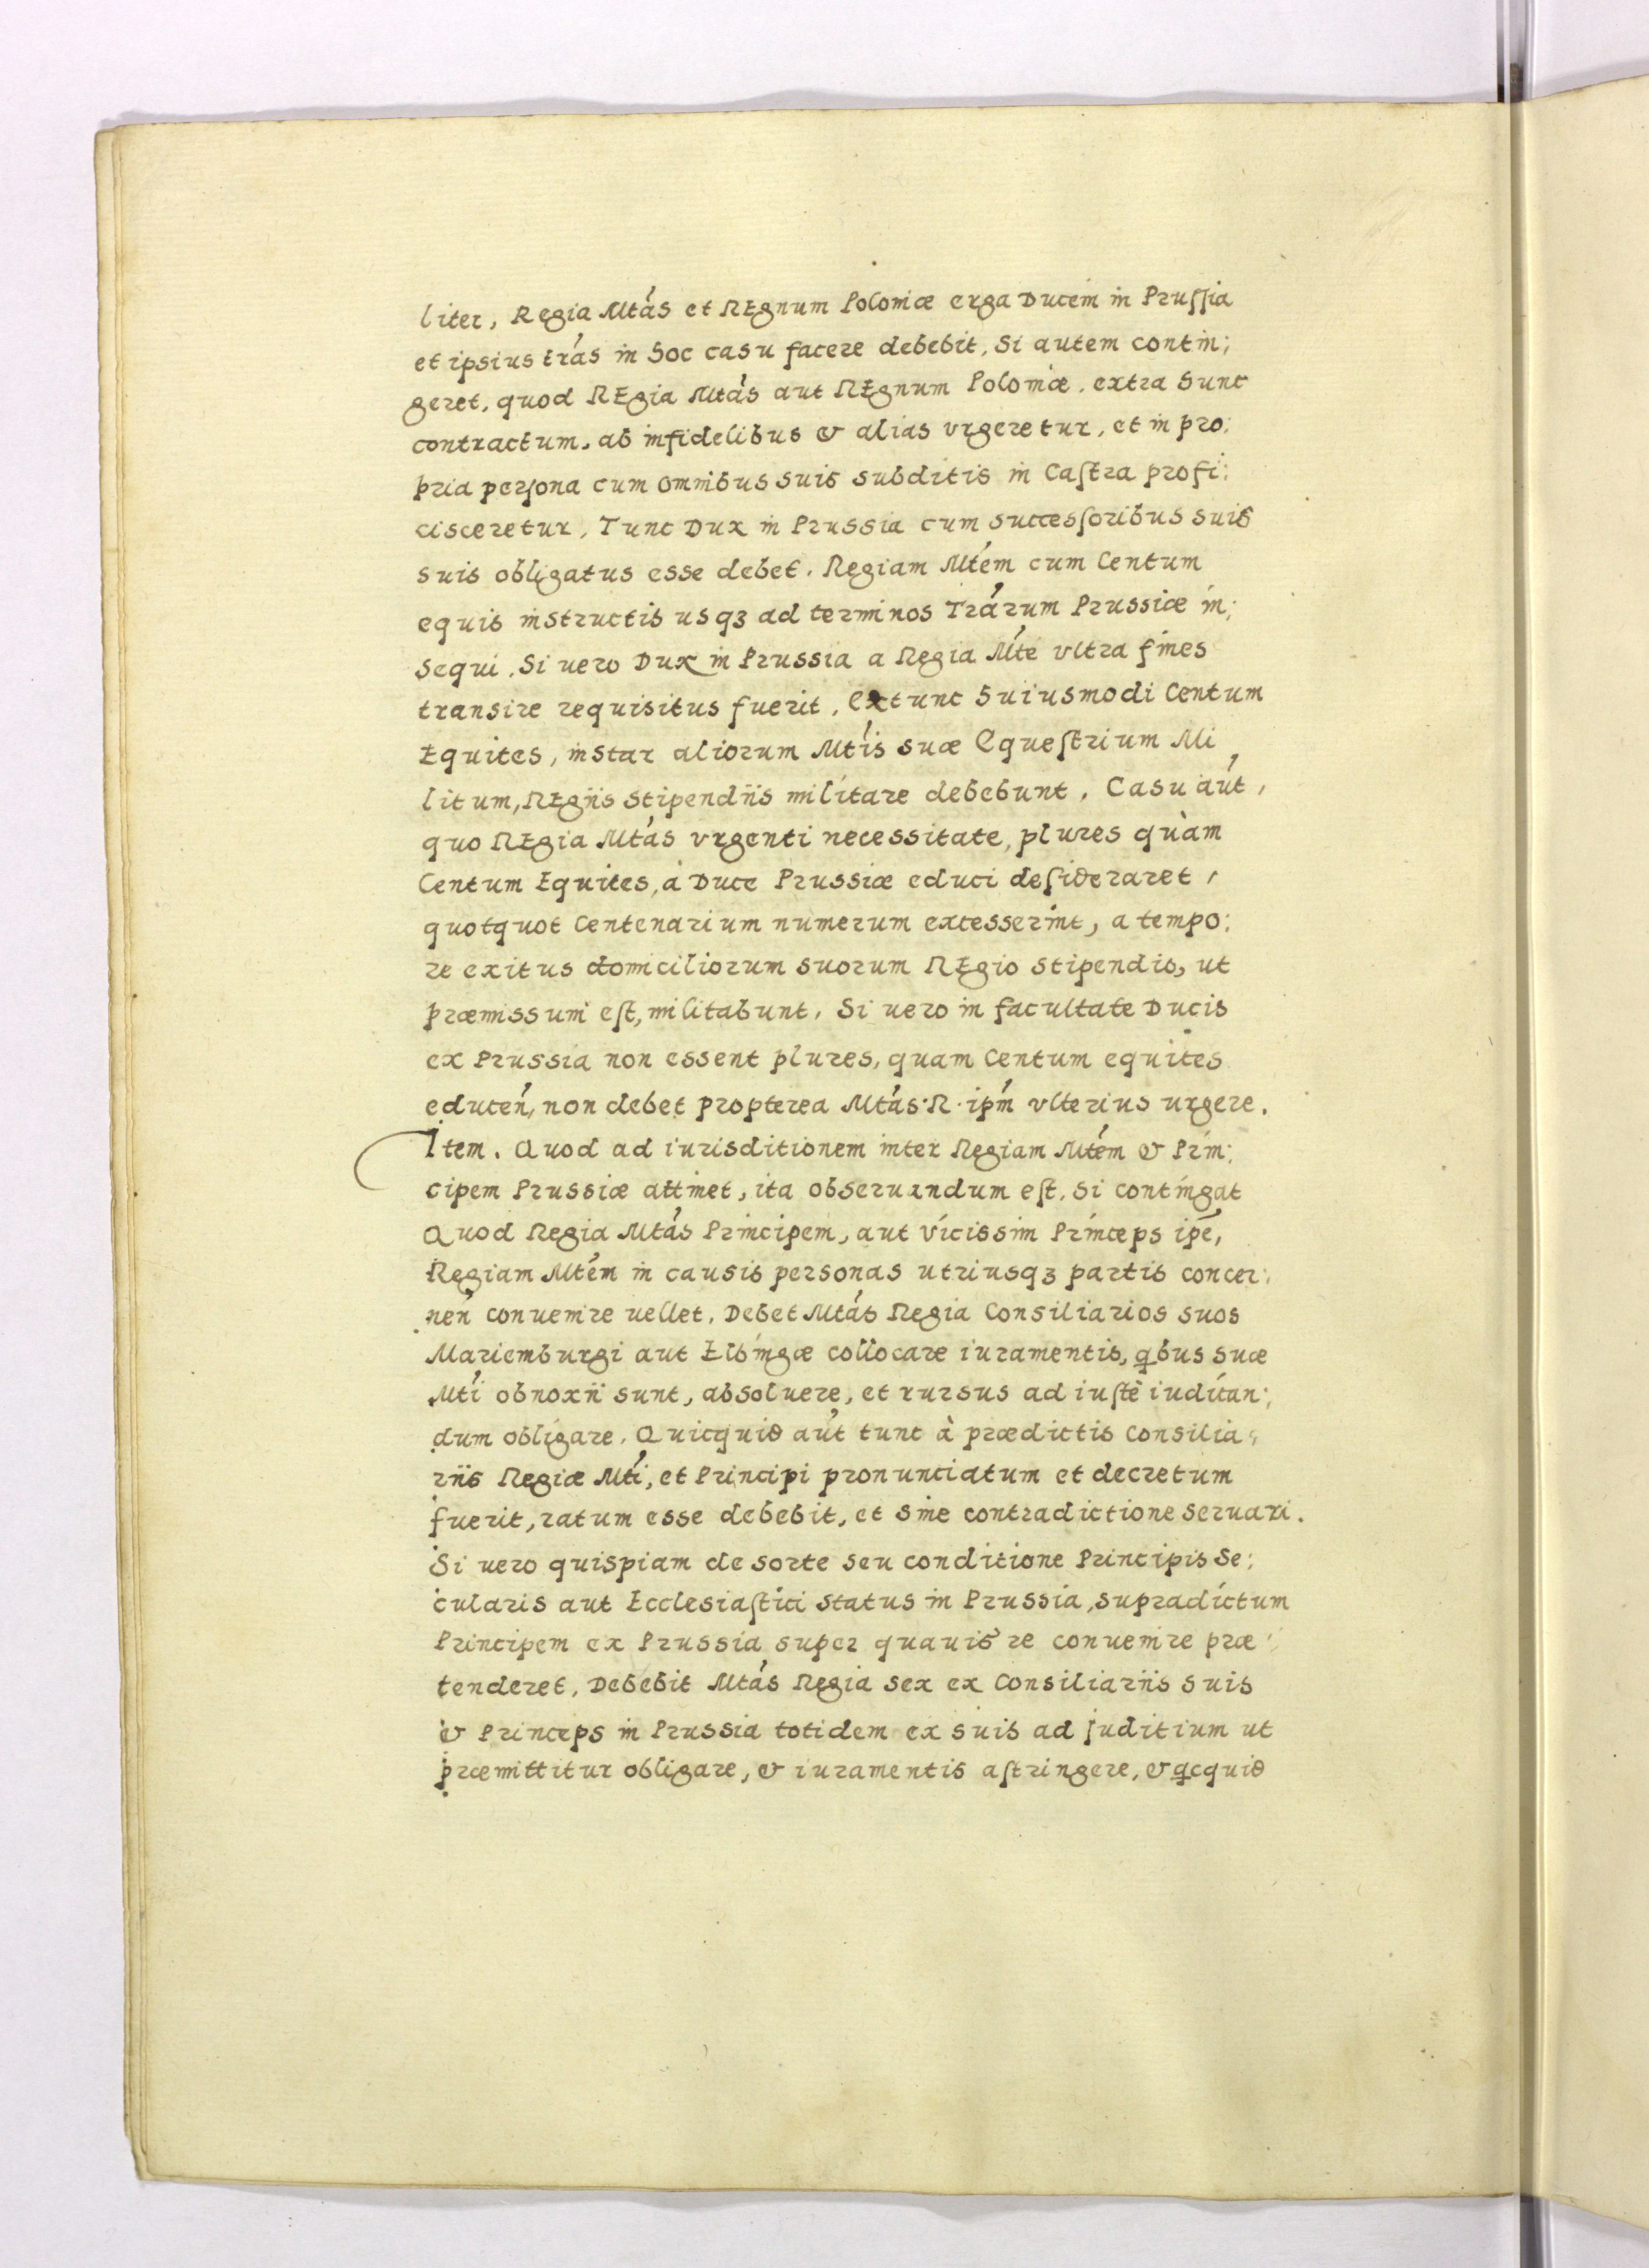 liter, Regia Mtás et REgnum Poloniæ erga Ducem in Prussia
et ipsius trás in hoc casu facere debebit, Si autem contin;
geret, quod REgia Mtás aut REgnum Poloniæ, extra hunc
contractum, ab infidelibus & alias vrgeretur, et in pro;
pria persona cum omnibus suis subditis in Castra profi;
cisceretur, Tunc Dux in Prussia cum successoribus suis
suis obligatus esse debet, Regiam Mtém cum Centum
equis instructis usqȝ ad terminos Trárum Prussiæ in;
sequi, Si uero Dux in Prussia a Regia Mté vltra fines
transire requisitus fuerit, Extunc huiusmodi Centum
Equites, instar aliorum Mtís suæ Equestrium Mi
litum, REgiis stipendiis militare debebunt, Casu aút,
quo REgia Mtás vrgenti necessitate, plures quàm
Centum Equites, à Duce Prussiæ educi desideraret,
quotquot Centenarium numerum excesserint, a tempo;
re exitus domiciliorum suorum REgio stipendis, ut
præmissum est, militabunt, Si uero in facultate Ducis
ex Prussia non essent plures, quam Centum equites
educen̄, non debet propterea Mtás R. ipm̄ vlterius urgere.
Item. Quod ad iurisditionem inter Regiam Mtém & Prin;
cipem Prussiæ attinet, ita obseruandum est, si contingat
Quod Regia Mtás Principem, aut vicissim Princeps ipé,
Regiam Mtém in causis personas utriusqȝ partis concer;
nen̄ conuenire uellet, Debet Mtás Regia Consiliarios suos
Mariemburgi aut Elbingæ collocare iuramentis, qbus suæ
Mtí obnoxii sunt, absoluere, et rursus ad iustè iudican;
dum obligare, Quicquid aút tunc à prædictis Consilia;
riis Regiæ Mtí, et Principi pronunciatum et decretum
fuerit, ratum esse debebit, et sine contradictione seruari.
Si uero quispiam de sorte seu conditione Principis Se;
cularis aut Ecclesiastici status in Prussia, supradictum
Principem ex Prussia super quauis re conuenire præ;
tenderet, Debebit Mtás Regia sex ex Consiliariis suis
& Princeps in Prussia totidem ex suis ad juditium ut
præmittitur obligare, & iuramentis astringere, & qcquid